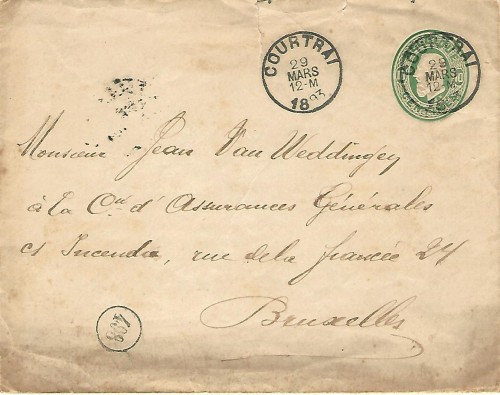 COURTRAI
29
MARS
12-M
1893
COURTRAI
29
MARS
12-M
Monsieur Jean Van Weddingey
à la Cie d'Assurances Générales
c/ Incendie, rue de la fiancée 24
Bruxelles